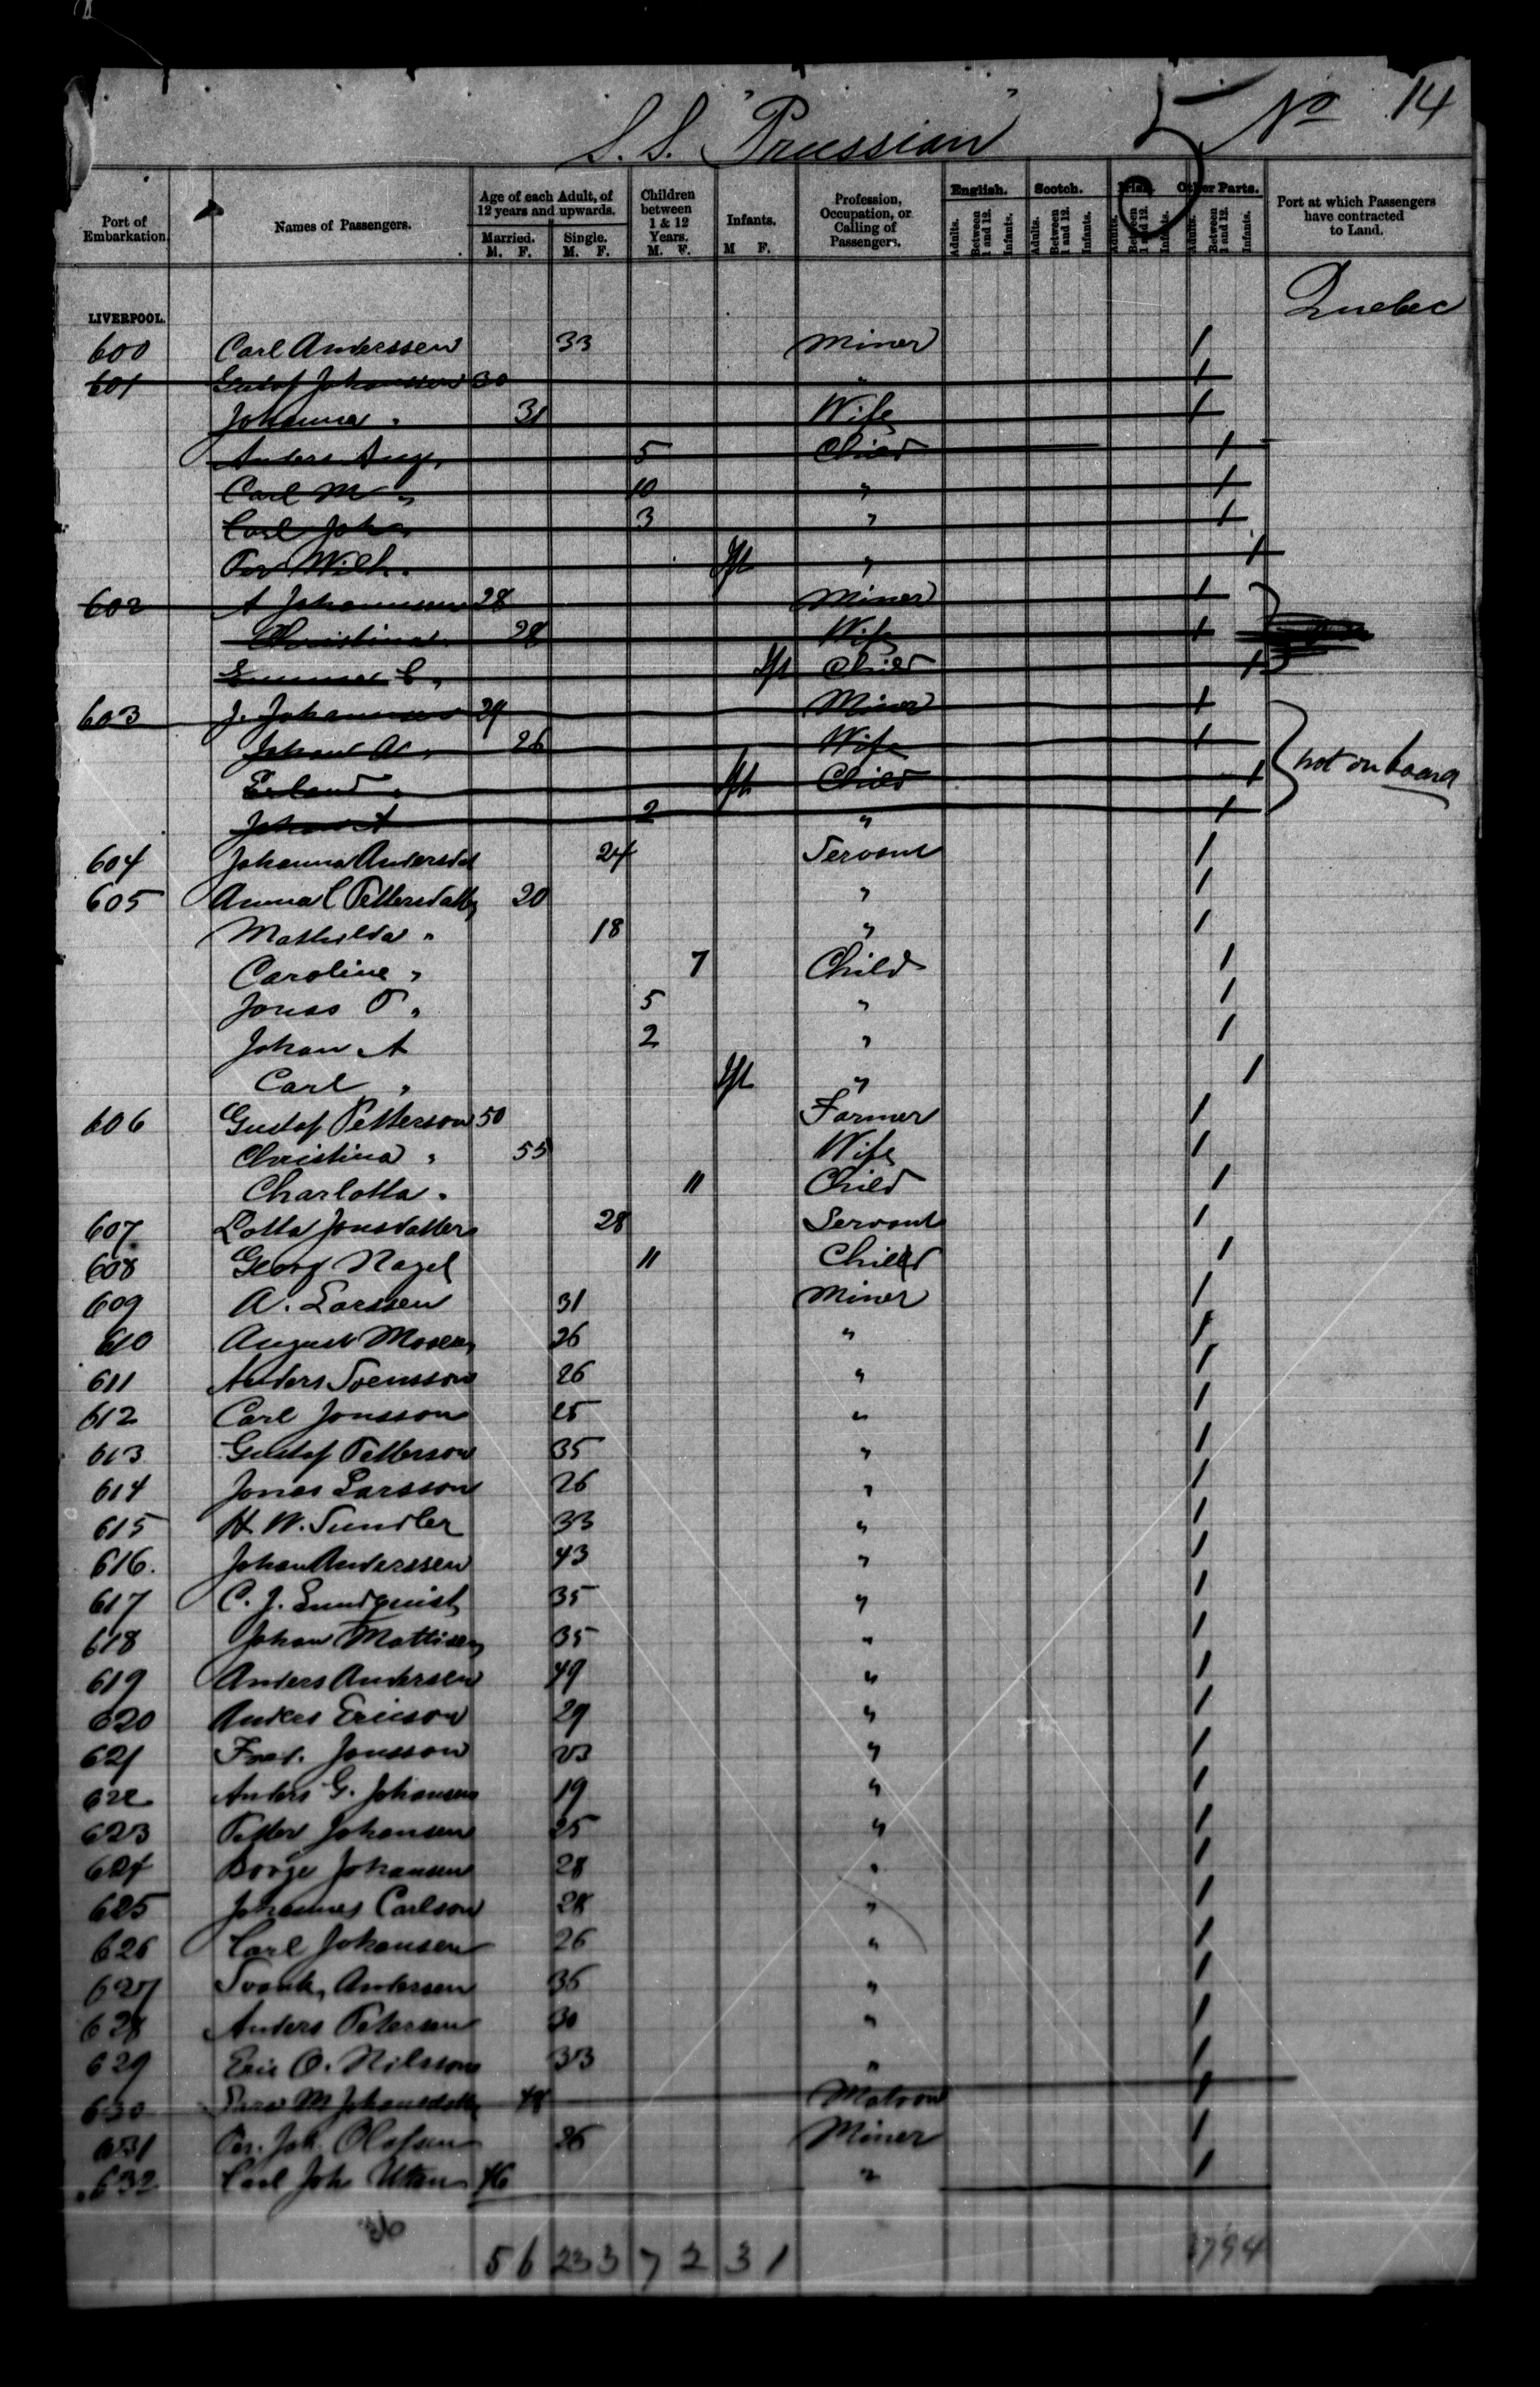 S.S. "Prussian" 5 No 14
Port of Embarkation. Names of Passengers. Age of each Adult, of 12 years and upwards. Married. M. F. Single. M. F. Children between 1 & 12 Years. M. F. Infants. M F. Profession, Occupation, or Calling of Passengers. English. Adults. Between 1 and 12. Infants. Scotch. Adults. Between 1 and 12. Infants. Irish. Adults. Between 1 and 12. Infants. Other Parts. Adults. Between 1 and 12. Infants. Port at which Passengers have contracted to Land.
LIVERPOOL. Quebec
600 Carl Anderssen 33 Miner 1
601 Gustof Johansson 30 " 1
Johanna " 31 Wife 1
Anders Aug " 5 Child 1
Carl M " 10 " 1
Carl Joh " 3 " 1
Per Wilh. Ift " 1
602 A Johannsen 28 Miner 1
Christina 28 Wife 1
Emma C " Ift Child 1
603 J. Johannsen 29 Miner 1
Johan A " 26 Wife 1
Erland " Ift Child 1 not on board
Johan A 2 " 1
604 Johanna Andersdat 24 Servant 1
605 Anna C Pettersdatter 20 " 1
Mathilda " 18 " 1
Caroline " 7 Child 1
Jonas O " 5 " 1
Johan A 2 " 1
Carl " Ift " 1
606 Gustof Petterson 50 Farmer 1
Christina " 55 Wife 1
Charlotta " 11 Child 1
607 Lotta Jonsdatter 28 Servant 1
608 Georg Nagel 11 Child 1
609 A. Larssen 31 Miner 1
610 August 26 " 1
611 Anders Svensson 26 " 1
612 Carl Jonsson 25 " 1
613 Gustof Petterson 35 " 1
614 Jonas Larsson 26 " 1
615 H. W. Sundler 33 " 1
616. Johan Anderssen 43 " 1
617 C. J. Lundquist 35 " 1
618 Johan Mattisen 35 " 1
619 Anders Andersen 49 " 1
620 Anders Ericson 29 " 1
621 Fred. Jonsson 23 " 1
622 Anders G. Johansen 19 " 1
623 Petter Johansen 25 " 1
624 Borge Johansen 28 " 1
625 Johannes Carlson 28 " 1
626 Carl Johansen 26 " 1
627 Andersen 36 " 1
628 Anders Petersen 30 " 1
629 Eric O. Nilsson 33 " 1
630 M Johansdatter 48 Matron 1
631 Per. Joh. Olafsen 26 Miner 1
632 Carl Joh 46 " 1
5 6 23 3 7 2 3 1